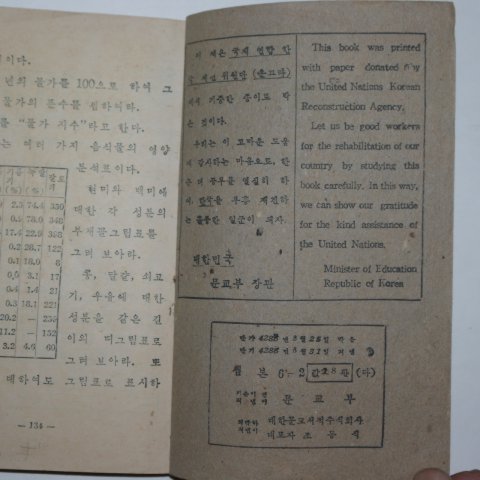 이다.
년의 물가를 100으로 하여 그
물가의 분수를 셈하여라.
를 "물가 지수"라고 한다.
는 여러 가지 음식물의 영양
분석표이다.
현미와 백미에
대한 각 성분의
부채꼴그림표를
그려 보아라.
콩, 달걀, 쇠고
기, 우유에 대한
성분을 같은 길
이의 띠그림표로
그려 보아라. 또
대하여도 그림표로 표시하
(%) (%)
2.3 74.4 350
0.9 78.0 348
17.4 22.9 398
0.2 28.7 122
0.1 18.0
0.3 3.1 17
0.4 1.4 21
0.3 18.1 221
20.2 — 253
11.2 — 152
3.2 4.6 69
— 134 —
이 책은 국제 연합 한
국 재건 위원단 (운끄라)
에서 기증한 종이로 박
은 것이다.
우리는 이 고마운 도움
에 감사하는 마음으로, 한
층 더 공부를 열심히 하
여, 한국을 부흥 재건하
는 훌륭한 일군이 되자.
대한민국
문교부 장관
This book was printed
with paper donated by
the United Nations Korean
Reconstruction Agency.
Let us be good workers
for the rehabilitation of our
country by studying this
book carefully. In this way,
we can show our gratitude
for the kind assistance of
the United Nations.
Minister of Education
Republic of Korea
단기 4288 년 3월 25일 박음
단기 4288 년 3월 31일 펴냄
셈본 6-2
문교부
대한문교서적주식회사
대표자 조